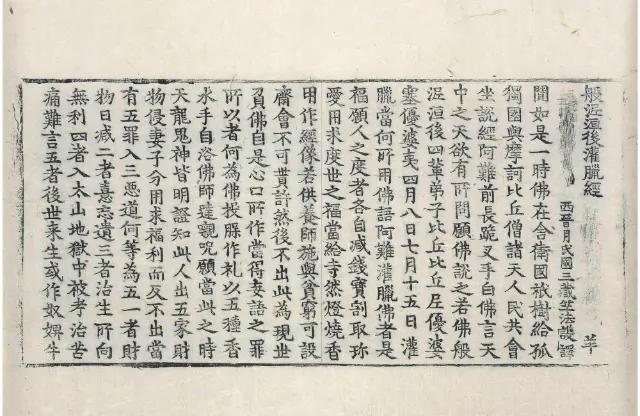 般泥洹後灌臘經
西晉月氏國三藏竺法護譯
聞如是一時佛在舍衛國祇樹給孤
獨園與摩訶比丘僧諸天人民共會
坐說經阿難前長跪叉手白佛言天
中之天欲有所問願佛說之若佛般
泥洹後四輩弟子比丘比丘尼優婆
塞優婆夷四月八日七月十五日灌
臘當何所用佛語阿難灌臘佛者是
福願人之度者各自減錢寶割取珎
愛用求度世之福當給寺然燈燒香
用作經像若供養師施與貧窮可設
齋會不可貰許然後不出此為現世
負佛自是心口所作當得妄語之罪
所以者何為佛投作礼以五種香
水手自浴佛師達嚫呪願當此之時
天龍鬼神皆明證知此人出五家財
物侵妻子分用求福利而反不出當
有五罪入三惡道何等為五一者財
物日減二者憙忘遺三者治生所向
無利四者入太山地獄中被考治苦
痛難言五者後世來生或作奴婢牛